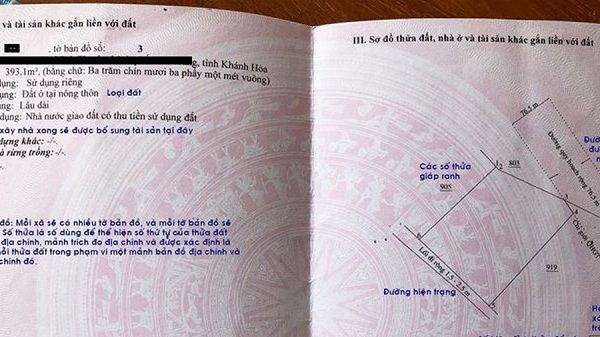 và tài sản khác gắn liền với đất
--- , tờ bản đồ số: 3
, tỉnh Khánh Hòa
393,1m², (bằng chữ: Ba trăm chín mươi ba phẩy một mét vuông)
dụng: Sử dụng riêng
dụng: Đất ở tại nông thôn Loại đất
dụng: Lâu dài
dụng: Nhà nước giao đất có thu tiền sử dụng đất
xây nhà xong sẽ được bổ sung tài sản tại đây
dựng khác: -/-.
à rừng trồng: -/-.
đồ: Mỗi xã sẽ có nhiều tờ bản đồ, và mỗi tờ bản đồ sẽ
Số thửa là số dùng để thể hiện số thứ tự của thửa đất
địa chính, mảnh trích đo địa chính và được xác định là
mỗi thửa đất trong phạm vi một mảnh bản đồ địa chính và
chính đó.
III. Sơ đồ thửa đất, nhà ở và tài sản khác gắn liền với đất
76.5 m
Đường quy hoạch rộng 76.5 m
Các số thửa
giáp ranh
905
2
803
3
4
Chỉ giới QHGT
919
5
Lối đi rộng 1.5 - 2.5 m
Đường hiện trạng